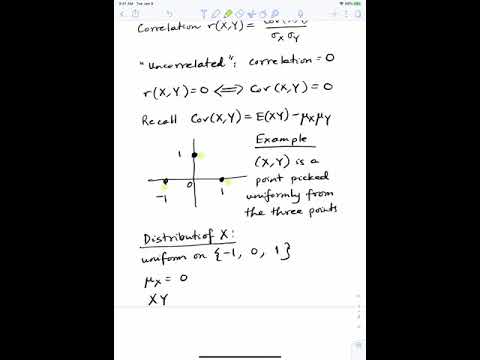 9:41 AM Tue Jan 9
Correlation r(X,Y) =
σX σY
"Uncorrelated": correlation = 0
r(X,Y) = 0 ⟺ Cov(X,Y) = 0
Recall Cov(X,Y) = E(XY) − μXμY
Example
(X,Y) is a
point picked
uniformly from
the three points
1
−1 0 1
Distribution of X:
uniform on {−1, 0, 1}
μX = 0
XY